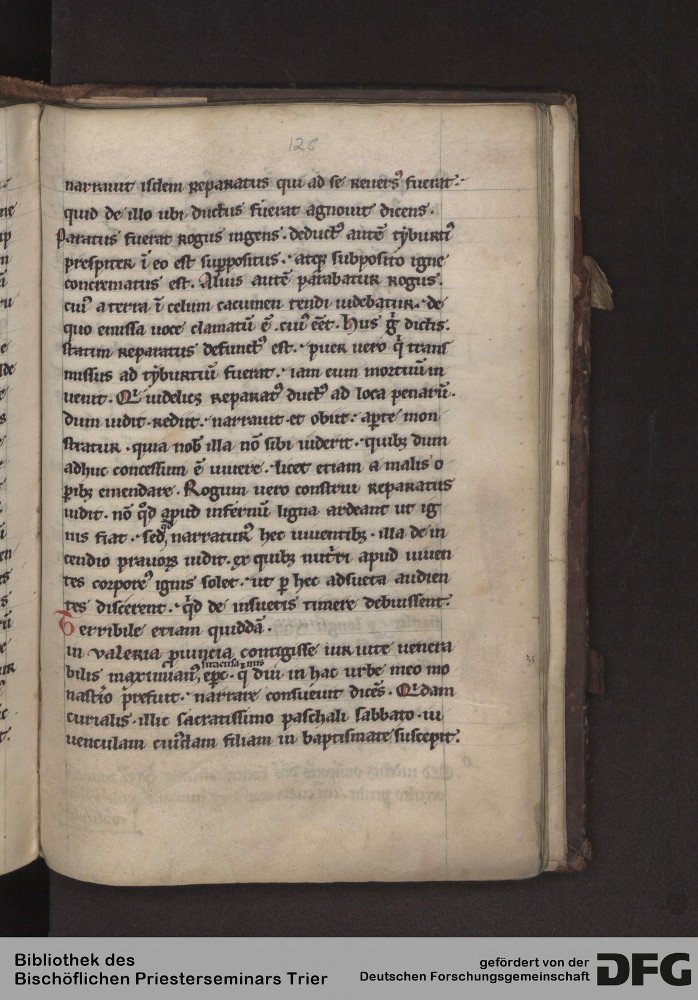 126
narrauit isdem reparatus qui ad se reuers᾽ fuerat.
quid de illo ubi ductus fuerat agnouit dicens.
Paratus fuerat rogus ingens. deduct᾽ autē tyburti᾽
prespiter ī eo est suppositus. atq; subposito igne
concrematus est. Alius autē parabatur rogus.
cui᾽ a terra ī celum cacumen tendi uidebatur. de
quo emissa uoce clamatū ē. cui᾽ eēt. Hus g̃ dictis.
statim reparatus defunct᾽ est. puer uero q̄ trans
missus ad tyburtiū fuerat. iam eum mortuū in
uenit. Qi uidelicȝ reparat᾽ duct᾽ ad loca penarū.
dum uidit. rediit. narrauit. et obiit. aꝑte mon
stratur. quia nob̄ illa nō sibi uiderit. quibȝ dum
adhuc concessum ē uiuere. licet etiam a malis o
ꝑibȝ emendare. Rogum uero construi reparatus
uidit. nō qd̄ apud infernū ligna ardeant ut ig
nis fiat. sed narratur᾽ hec uiuentibȝ. illa de in
cendio prauoꝝ uidit. ex quibȝ nut̄ri apud uiuen
tes corpore᾽ ignis solet. ut ꝑ hec adsueta audien
tes discerent. qd̄ de insuetis timere debuissent.
Terribile etiam quiddā.
in valeria ꝓuincia contigisse uir uite uenera
bilis maximian᾽ siracusanus eꝑc. q̄ diu in hac urbe meo mo
nastio p̄refuit. narrare consueuit dicēs. Qidam
curialis. illic sacratissimo paschali sabbato. iu
uenculam cui᾽dam filiam in baptismate suscepit.
Bibliothek des
Bischöflichen Priesterseminars Trier
gefördert von der
Deutschen Forschungsgemeinschaft
DFG